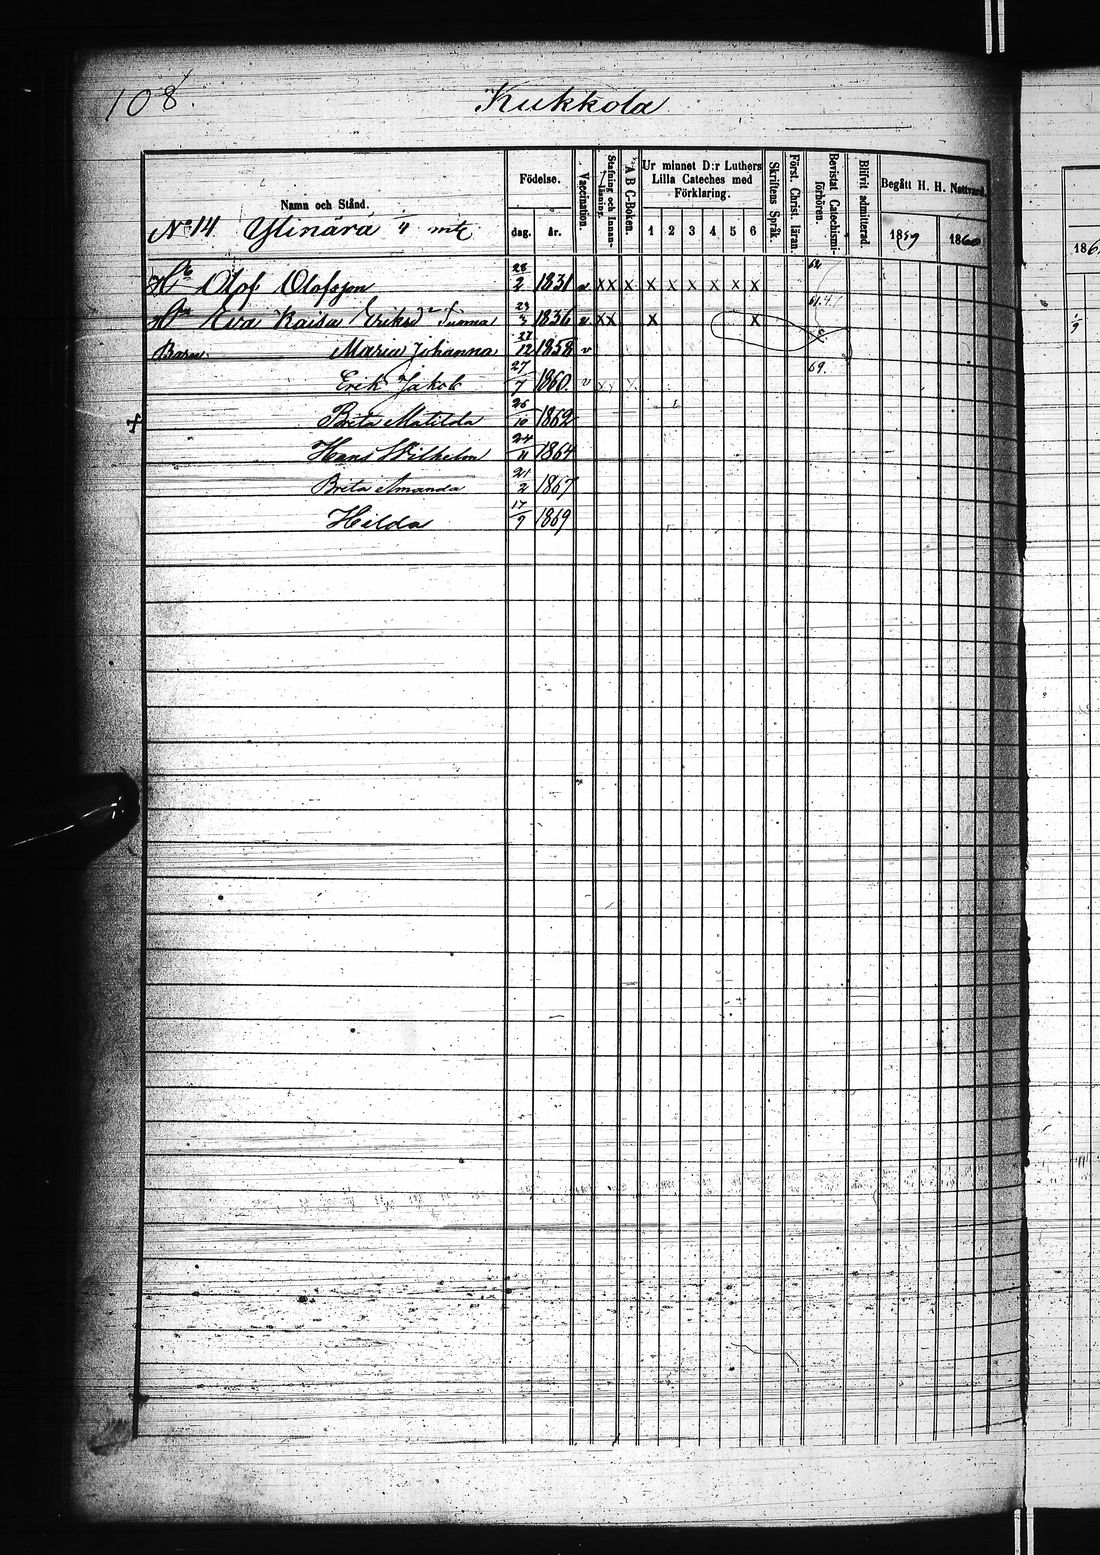 108.
Kukkola
Namn och Stånd. Födelse. dag. år. Vaccination. Stafning och Innanläsning. A B C-Boken. Ur minnet D:r Luthers Lilla Cateches med Förklaring. 1 2 3 4 5 6 Skriftens Språk. Först. Christ. läran. Bevistat Catechismiförhören. Blifvit admitterad Begått H. H. Nattvard. 1859 1860
No 14 Ylinärä 1/4 mtl
Olof Olofsson 28/2 1831 v x x x x x x x x x 62
Eva Kaisa Eriksd. 23/3 1836 v. x x x x 61.
Barn: Maria Johanna 27/12 1858 v
Erik Jakob 27/7 1860. v x x x 69.
+ Brita Matilda 26/10 1862
Hans Wilhelm 24/11 1864
Brita Amanda 21/2 1867
Hilda 17/9 1869